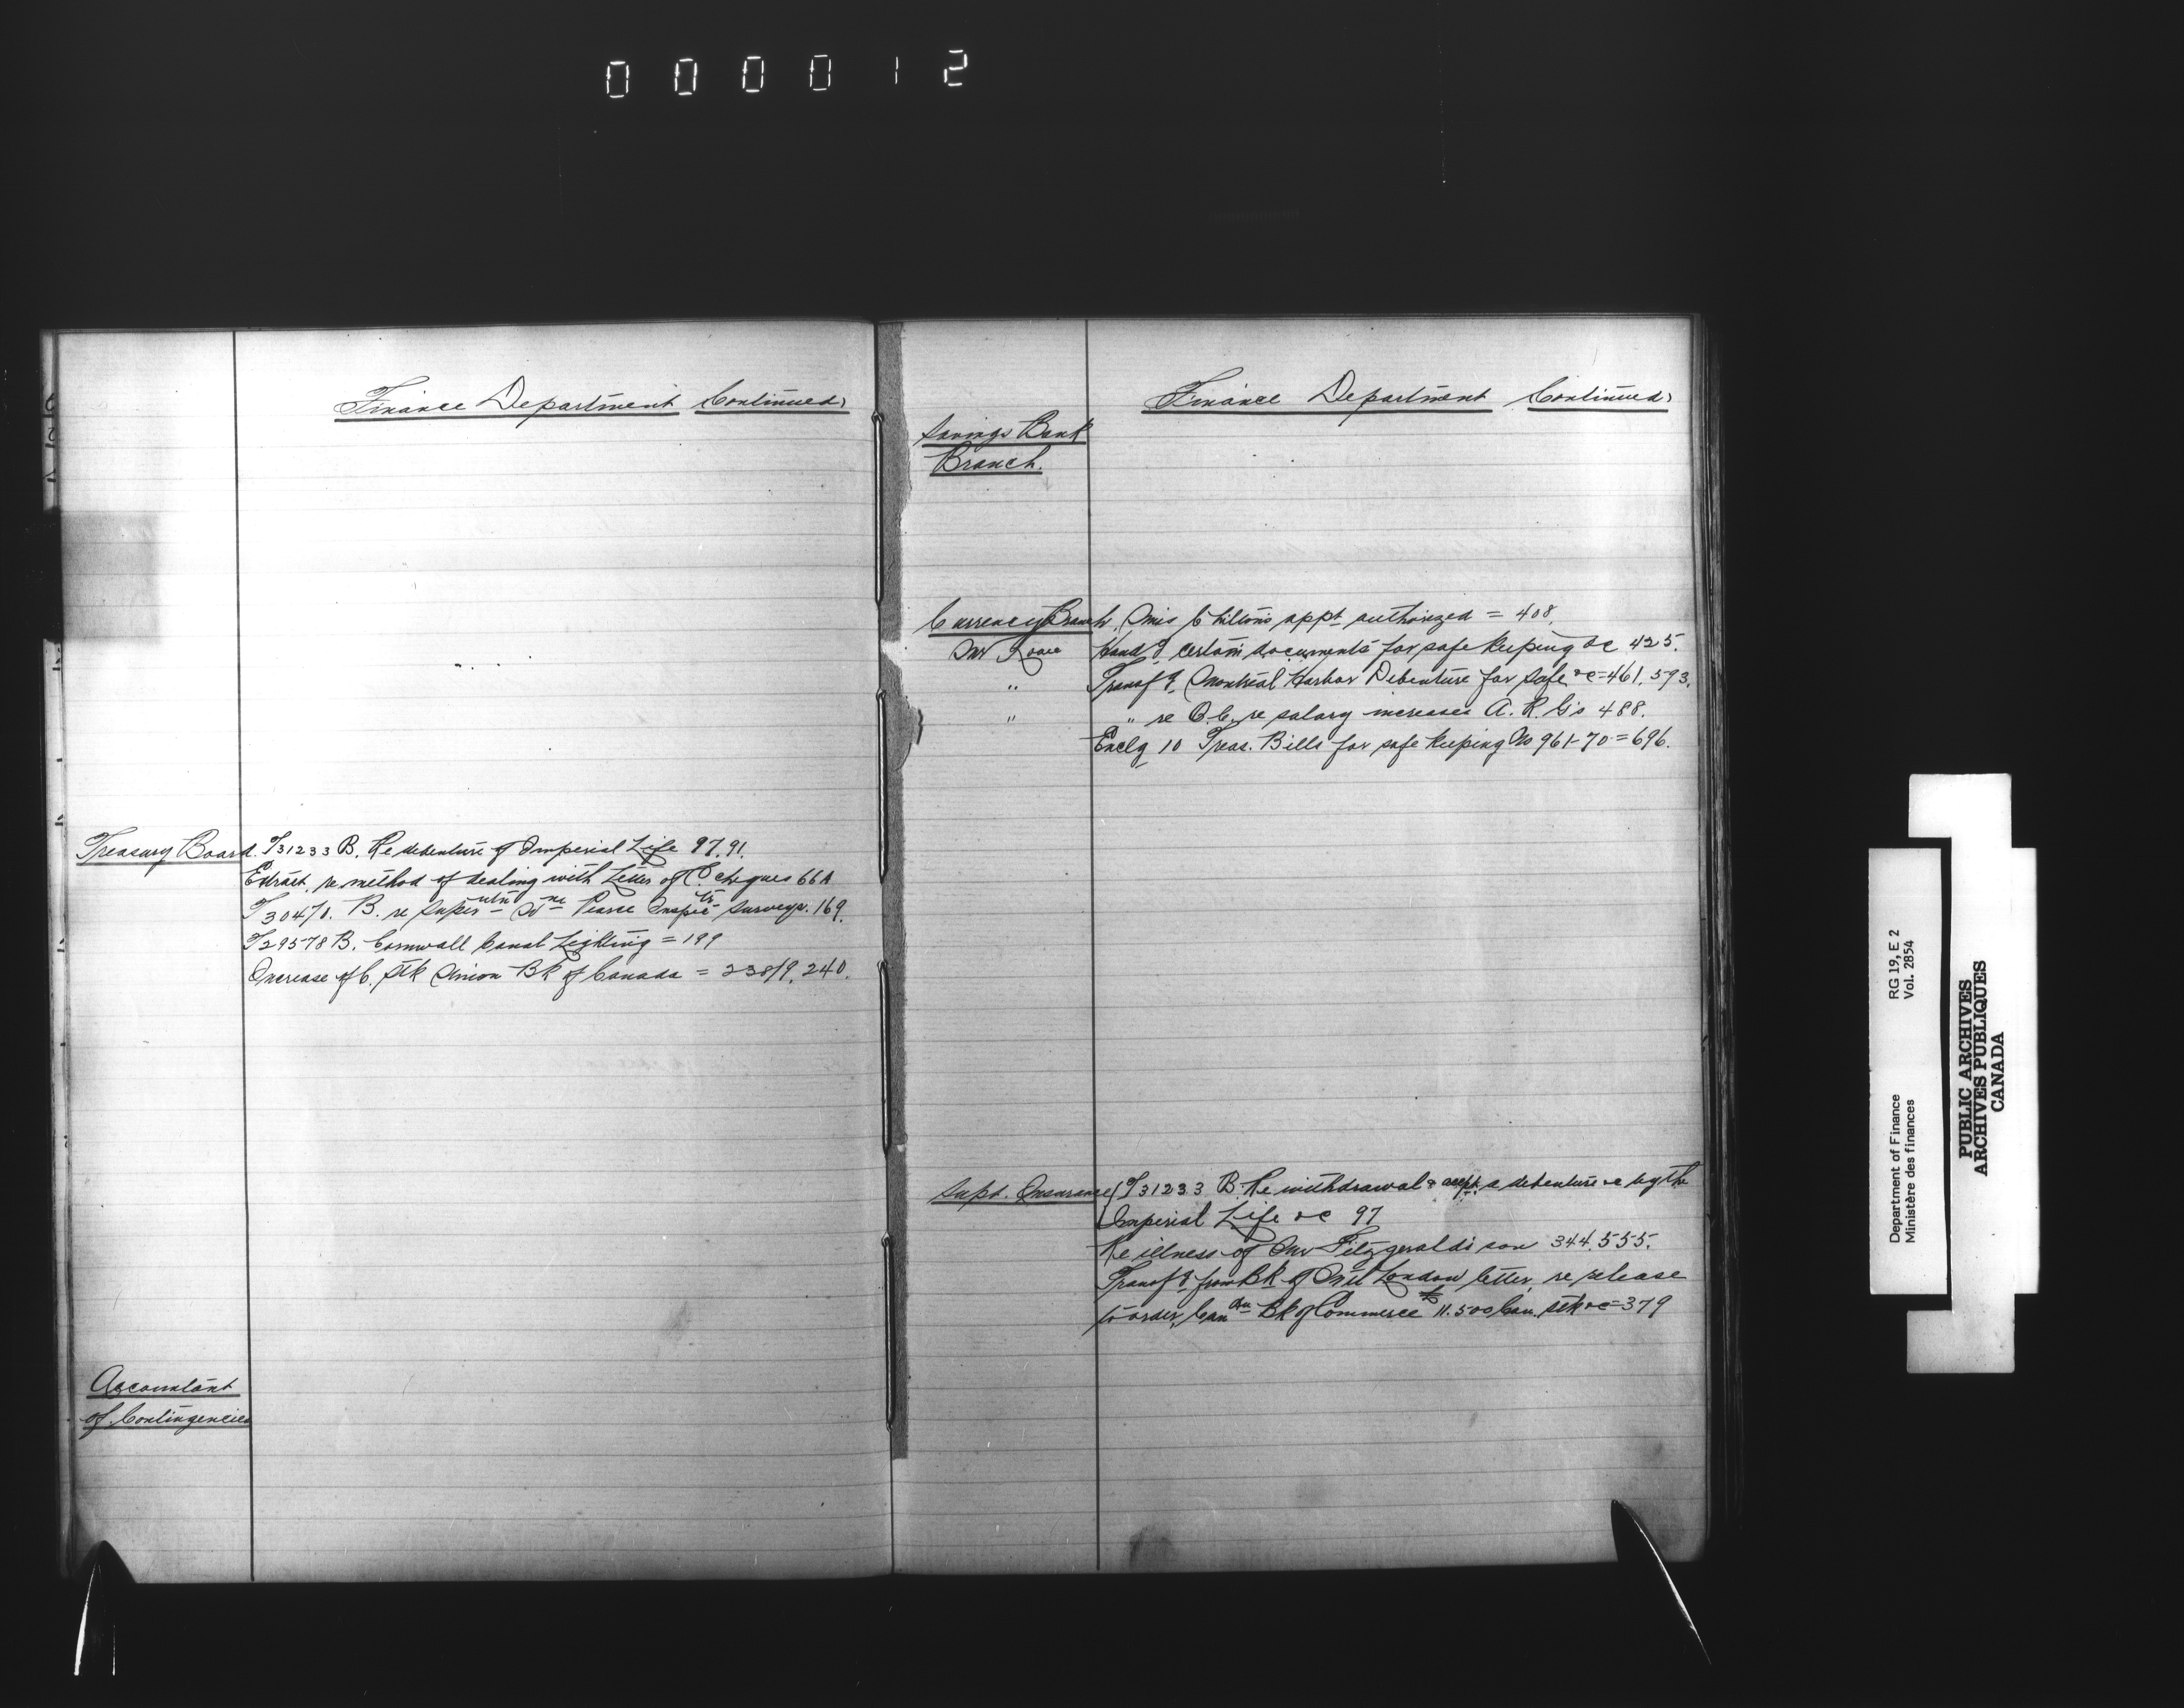 000012
Finance Department Continued,
Treasury Board. T31233 B. Re debenture of Imperial Life 97.91.
Extract, re method of dealing with Letter of C. cheques 66A
T30470. B. re Superntn Wm Pearce Inspectr Surveys. 169.
T29578 B. Cornwall Canal Lighting = 199
Increase of C. Stk Union Bk of Canada = 238/9, 240.
Accountant
of Contingencies
Finance Department Continued,
Savings Bank
Branch.
Currency Branch, Miss Chilton's appt authorized = 408.
Mr Rowe Handg certain documents for safe keeping &c 425.
" Transfg Montreal Harbor Debenture for safe &c = 461, 593.
" " re O.C. re salary increases A. R. G's 488.
Enclg 10 Treas. Bills for safe keeping No 961-70 = 696.
Supt. Insurance T31233 B. Re withdrawal & accpt a debenture &c by the
Imperial Life &c 97
Re illness of Mr Fitzgerald's son 344, 555.
Transfg from Bk of Mtl London letter, re release
to order, Candn Bk of Commerce £11.500 Can. Stk &c = 379
Department of Finance RG 19, E 2
Ministère des finances Vol. 2854
PUBLIC ARCHIVES
ARCHIVES PUBLIQUES
CANADA